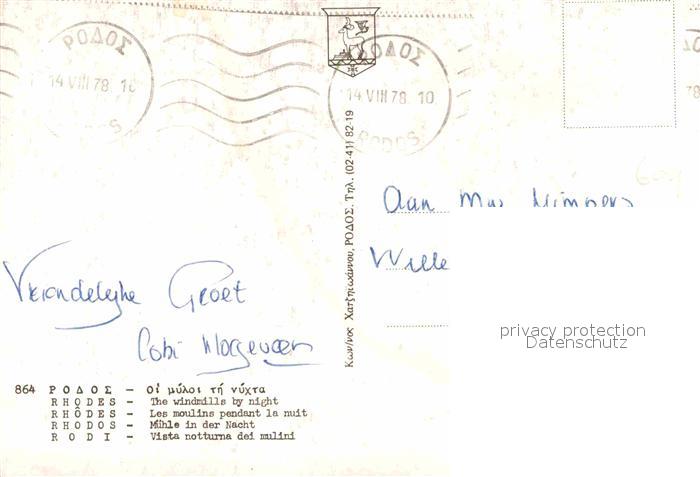 ΡΟΔΟΣ
14 VIII 78. 10
S
ΡΟΔΟΣ
14 VIII 78. 10
RODOS
78
Κων/νος Χατζηιωάννου, ΡΟΔΟΣ. Τηλ. (02-41) 82-19
Aan
Wille
Groet
Cobi
864 ΡΟΔΟΣ - Οἱ μύλοι τή νύχτα
RHODES - The windmills by night
RHÔDES - Les moulins pendant la nuit
RHODOS - Mühle in der Nacht
RODI - Vista notturna dei mulini
privacy protection
Datenschutz